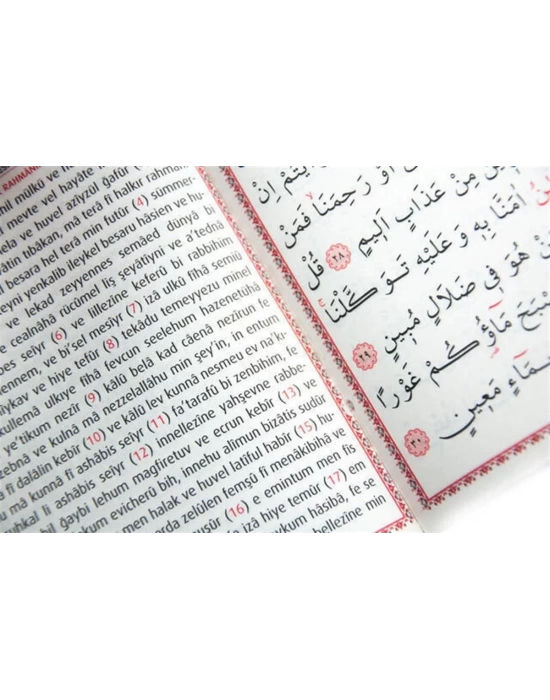 RAHMANİ
mil mülkü ve h
l meyte vel hayate
ela ve huvel azîyzül ğafûr (2)
âtin tıbâkan, mâ terâ fî halkır rahman
l besara hel terâ min futûr (4) sümmer-
eyni yenkalib ileykel besaru hâsien ve hu-
ve lekad zeyyennes semâed dünyâ bi
e cealnâhâ rücûmel liş şeyâtîyni ve a'tednâ
bes seîyr (6) ve lillezîne keferû bi rabbihim
ennem, ve bi'sel mesîyr (7) izâ ulkû fîhâ semiû
îykav ve hiye tefûr (8) tekâdu temeyyezu minel
küllemâ ulkıye fîhâ fevcun seelehum hazenetühâ
e'tikum nezîr (9) kâlû belâ kad câenâ nezîrun fe
zebnâ ve kulnâ mâ nezzelallâhu min şey'in, in entum
â fî dalâlin kebîr (10) ve kâlû lev kunnâ nesmeu ev na'kı-
u mâ kunnâ fî ashâbis seîyr (11) fa'tarafû bi zenbihim, fe
uhkal li ashâbis seîyr (12) innellezîne yahşevne rabbe-
bil ğaybi lehum mağfiretuv ve ecrun kebîr (13) ve
kum evicherû bih, innehu alîmun bizâtis sudûr
men halak ve huvel latîful habîr (15) hu-
arda zelûlen femşû fî menâkibihâ ve
nuşûr (16) e emintum men fis
e izâ hiye temûr (17) em
eykum hâsibâ, fe se
bellezîne min
اَوْ رَحِمَنَا فَمَنْ
مِنْ عَذَابٍ اَلِيمٍ ﴿٢٨﴾ قُلْ
اٰمَنَّا بِهِ وَعَلَيْهِ تَوَكَّلْنَا
هُوَ فِي ضَلَالٍ مُبِينٍ ﴿٢٩﴾
مَاؤُكُمْ غَوْرًا
مَعِينٍ ﴿٣٠﴾